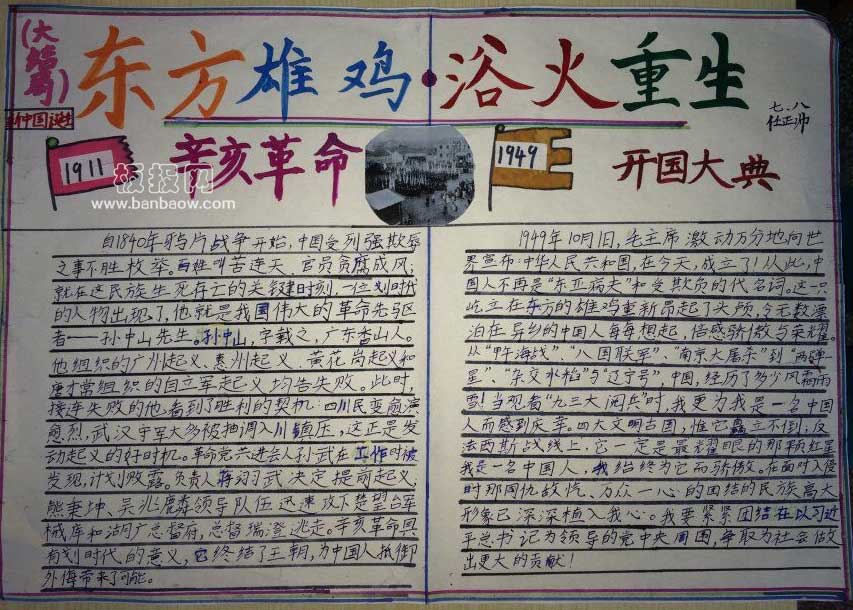 (大结局)
东方雄鸡·浴火重生
新中国诞生
七.八
任正沛
1911
辛亥革命
1949
开国大典
板报网
www.banbaow.com
自1840年鸦片战争开始,中国受列强欺辱
之事不胜枚举。百姓叫苦连天、官员贪腐成风;
就在这民族生死存亡的关键时刻,一位划时代
的人物出现了,他就是我国伟大的革命先马区
者——孙中山先生。孙中山,字载之,广东香山人。
他组织的广州起义、惠州起义、黄花岗起义和
唐才常组织的自立军起义均告失败。此时,
接连失败的他看到了胜利的契机:四川民变愈演
愈烈,武汉守军大多被抽调入川镇压,这正是发
动起义的好时机。革命党共进会人孙武在工作时被
发现,计划败露。负责人蒋翊武决定提前起义,
熊秉坤、吴兆麟领导队伍迅速攻下楚望台军
械库和湖广总督府,总督瑞澄逃走。辛亥革命具
有划时代的意义,它终结了王朝,为中国人抵御
外侮带来了可能。
1949年10月1日,毛主席激动万分地向世
界宣布:中华人民共和国,在今天,成立了!从此,中
国人不再是“东亚病夫”和受欺负的代名词。这一只
屹立在东方的雄鸡重新昂起了头颅,令无数漂
泊在异乡的中国人每每想起,倍感骄傲与荣耀。
从“甲午海战”、“八国联军”、“南京大屠杀”到“两弹一
星”、“杂交水稻”与“辽宁号”,中国,经历了多少风霜雨
雪!当观看“九三大阅兵”时,我更为我是一名中国
人而感到庆幸。四大文明古国,惟它矗立不倒;反
法西斯战线上,它一定是最耀眼的那颗红星
我是一名中国人,我始终为它而骄傲。在面对入侵
时那同仇敌忾、万众一心的团结的民族高大
形象已深深植入我心。我要紧紧团结在以习近
平总书记为领导的党中央周围,争取为社会做
出更大的贡献!